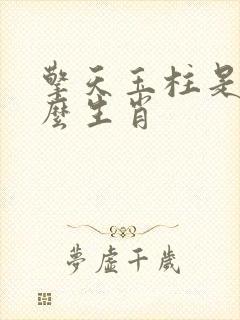 擎天玉柱是
麼生肖
夢虛千歲